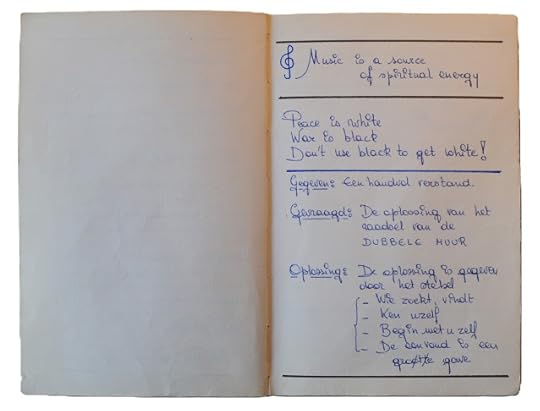 Music is a source
of spiritual energy
Peace is white
War is black
Don't use black to get white!
Gegeven: Een handvol verstand.
Gevraagd: De oplossing van het
raadsel van de
DUBBELE MUUR
Oplossing: De oplossing is gegeven
door het stelsel
- Wie zoekt, vindt
- Ken uzelf
- Begin met u zelf
- De eenvoud is een
grootse gave